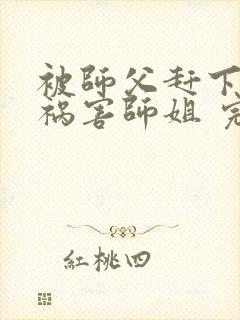 被師父赶下
祸害師姐 完
紅桃四